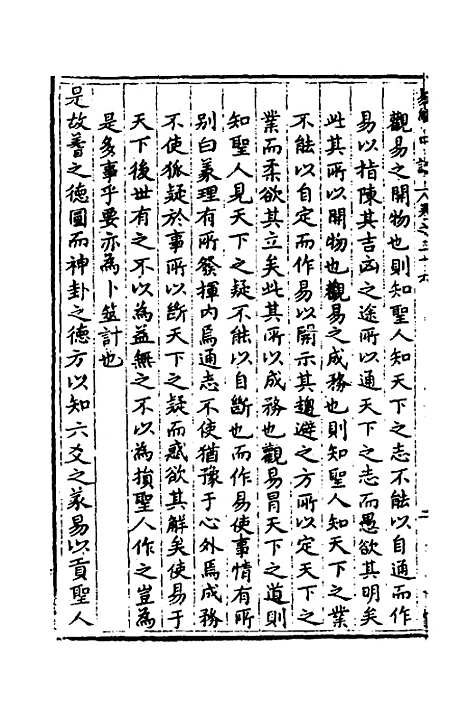 觀易之開物也則知聖人知天下之志不能以自通而作
易以指陳其吉凶之途所以通天下之志而愚欲其明矣
此其所以開物也觀易之成務也則知聖人知天下之業
不能以自定而作易以開示其趨避之方所以定天下之
業而柔欲其立矣此其所以成務也觀易冒天下之道則
知聖人見天下之疑不能以自斷也而作易使事情有所
別白義理有所發揮内焉通志不使猶豫于心外焉成務
不使狐疑於事所以斷天下之疑而惑欲其解矣使易于
天下後世有之不以為益無之不以為損聖人作之豈為
是多事乎要亦為卜筮計也
是故蓍之德圓而神卦之德方以知六爻之義易以貢聖人